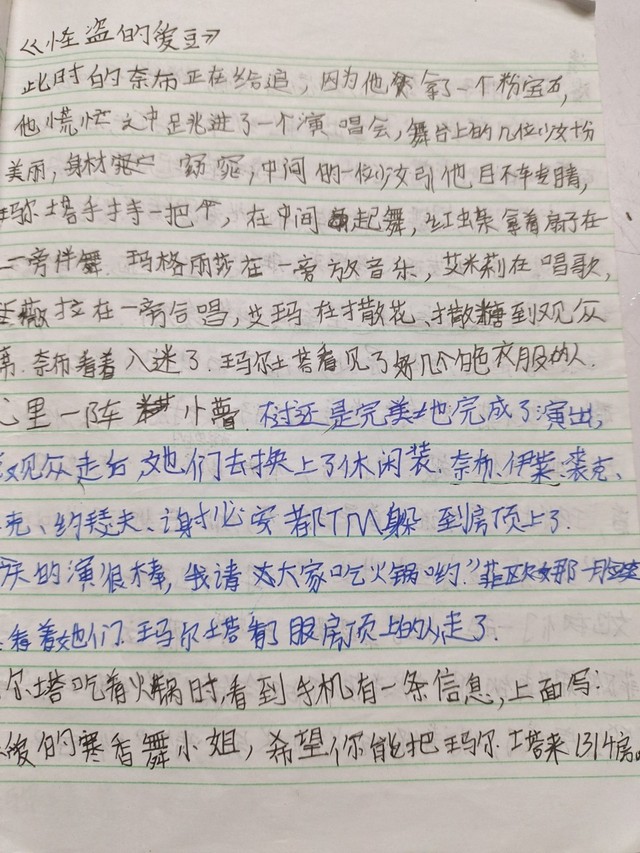 《怪盗的爱豆》
此时的奈布正在给追，因为他拿了一个粉宝石，
他慌忙之中跳进了一个演唱会，舞台上的几位少女十分
美丽，身材窈窕，中间的一位少女引他目不转睛，
玛尔塔手持一把伞，在中间起舞，红蝶拿着扇子在
一旁伴舞.玛格丽莎在一旁放音乐，艾米莉在唱歌，
薇拉在一旁合唱，艾玛在撒花、撒糖到观众
席.奈布看着入迷了.玛尔塔看见了好几个白色衣服的人.
心里一阵小萼.不过还是完美地完成了演出，
观众走后，她们去换上了休闲装、奈布、伊莱、裘克、
克、约瑟夫、谢必安都TM躲到房顶上了.
天的演很棒，我请大家吃火锅哟."菲欧娜一脸
看着她们.玛尔塔看了眼房顶上的人走了.
尔塔吃着火锅时，看到手机有一条信息，上面写：
爱的寒香舞小姐，希望你能把玛尔塔来1314房